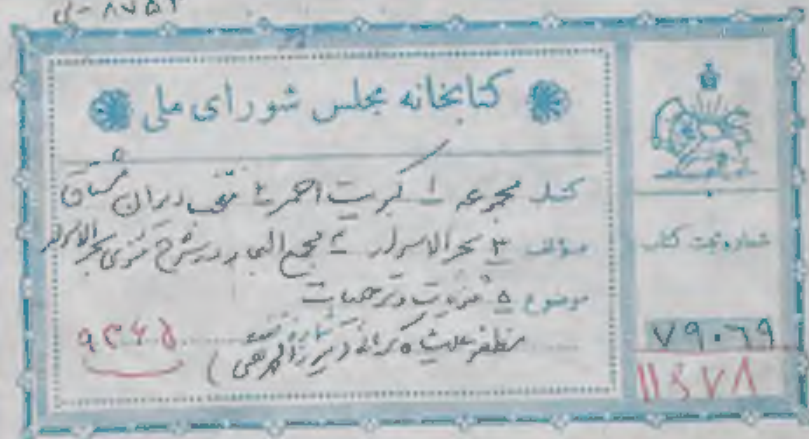 ۸۷۵۲ - ی
کتابخانه مجلس شورای ملی
کتاب مجموعه ۱ کبریت احمر ۲ منتخب دیوان مشتاق
مؤلف ۳ بحر الاسرار ۴ مجمع البحار در شرح مثنوی بحر الاسرار
موضوع ۵ غزلیات و ترجیعات
مظفر علیشاه کرمانی (میرزا محمد تقی)
شماره قفسه
۹۳۴۵
شماره ثبت کتاب
۷۹۰۶۹
۱۱۶۷۸